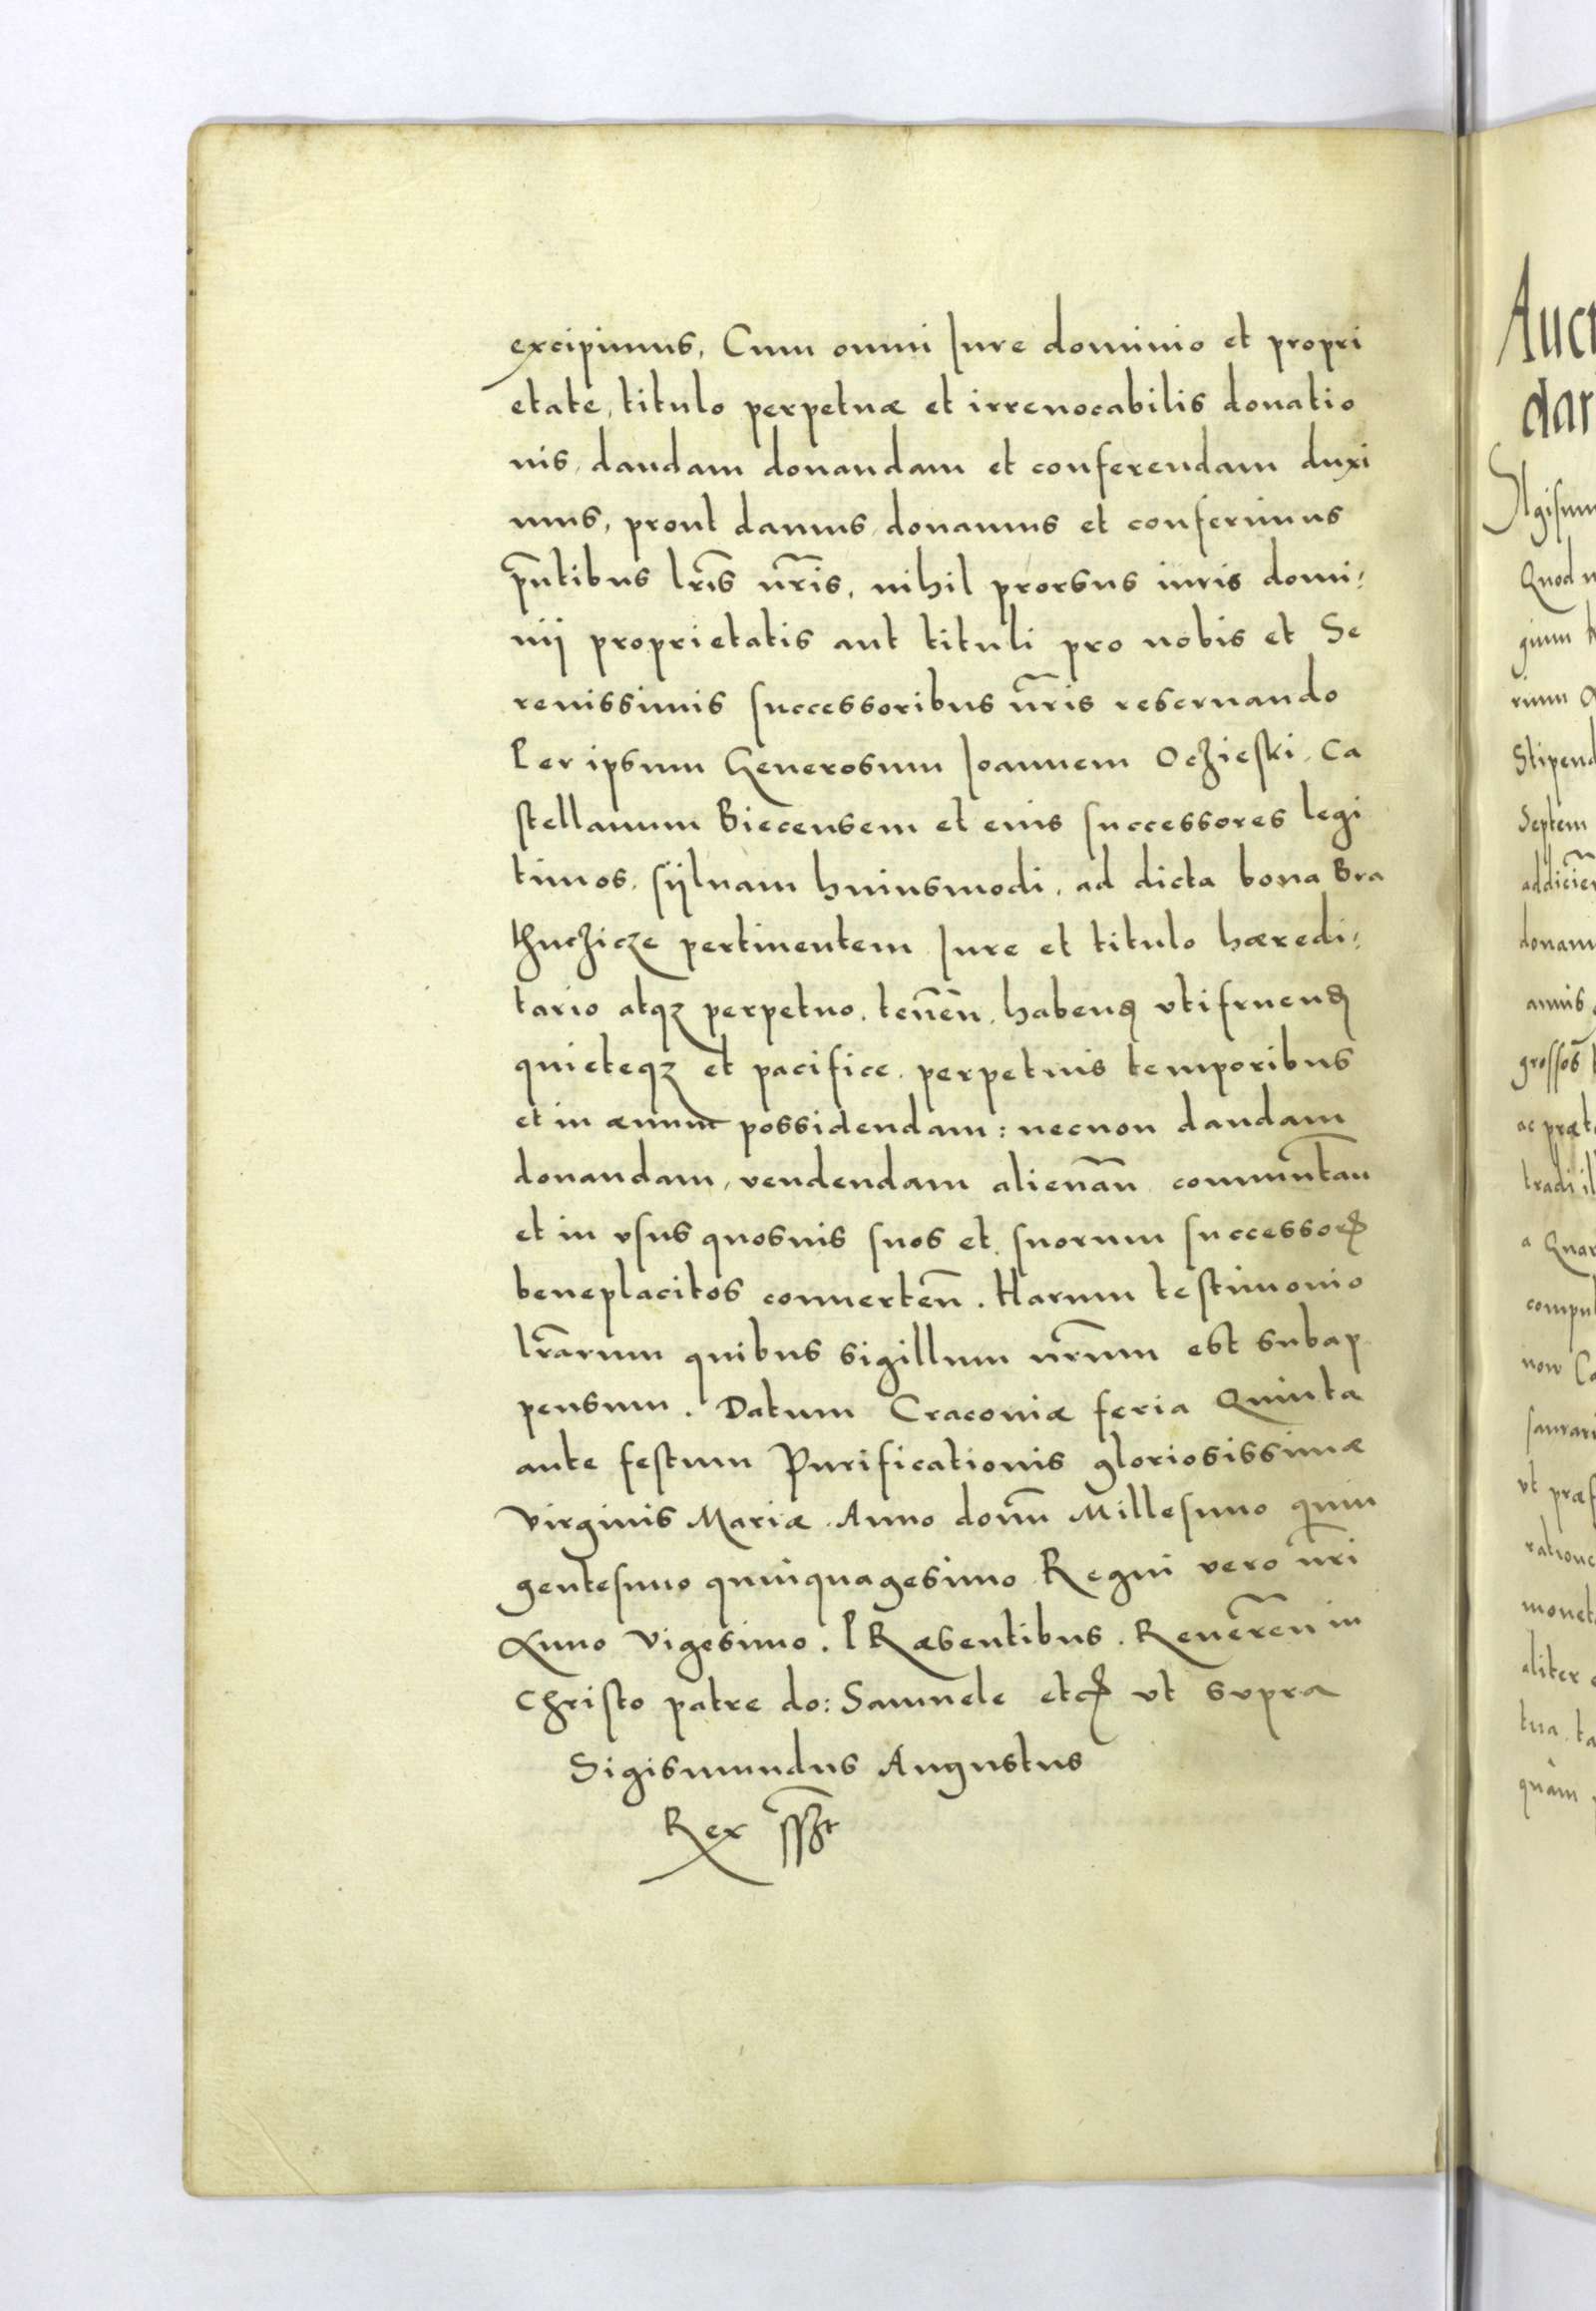 excipimus, Cum omni Iure dominio et propri
etate, titulo perpetuæ et irreuocabilis donatio
nis, dandam donandam et conferendam duxi
mus, prout damus donamus et conferimus
p̃ntibus lr̃is nr̃is, nihil prorsus iuris domi:
nij proprietatis aut tituli pro nobis et Se
renissimis successoribus nr̃is reseruando
Per ipsum Generosum Ioannem Oczieski, Ca
stellanum Biecensem et eius successores legi
timos, syluam huiusmodi, ad dicta bona Bra
thuczicze pertinentem Iure et titulo hæredi:
tario atqz perpetuo, teneñ, habenđ vtifruenđ
quieteqz et pacifice, perpetuis temporibus
et in æuum possidendam: necnon dandam
donandam, vendendam alienañ commutañ
et in vsus quosuis suos et suorum successorꝝ
beneplacitos conuerteñ. Harum testimonio
lr̃arum quibus sigillum nr̃um est subap
pensum. Datum Cracouiæ feria Quinta
ante festum Purificationis gloriosissimæ
Virginis Mariæ Anno domi Millesimo quin
gentesimo quinquagesimo Regni vero nr̃i
Anno Vigesimo. PRæsentibus. Reuereñ in
Christo patre do: Samuele etcꝭ vt supra
Sigismundus Augustus
Rex sszt
Auct
dar
SIgism
Quod n
gium
rium
Stipend
Septem
addicien
donam
annis
grossos
ac præt
tradi il
a Quar
comput
non Ca
saurari
vt præf
ratione
moneta
aliter
tua, ta
quàm